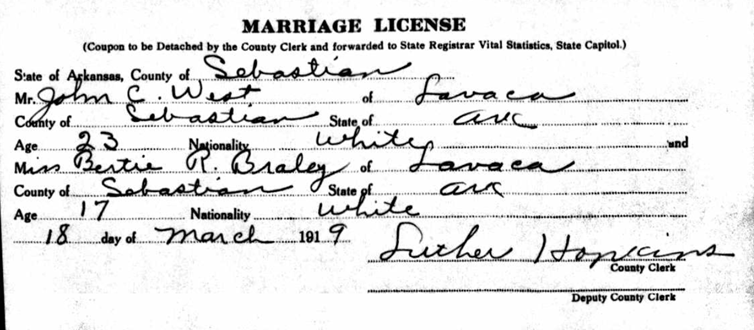 MARRIAGE LICENSE
(Coupon to be Detached by the County Clerk and forwarded to State Registrar Vital Statistics, State Capitol.)
State of Arkansas, County of Sebastian
Mr. John C. West of Lavaca
County of Sebastian State of ark
Age 23 Nationality white and
Miss Bertie R. Braley of Lavaca
County of Sebastian State of ark
Age 17 Nationality white
18 day of march 1919
Luther Hopkins
County Clerk
Deputy County Clerk